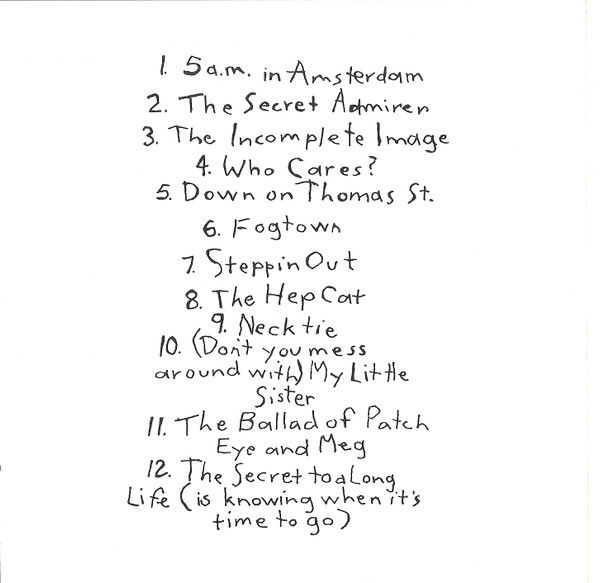 1. 5 a.m. in Amsterdam
2. The Secret Admirer
3. The Incomplete Image
4. Who Cares?
5. Down on Thomas St.
6. Fogtown
7. Steppin Out
8. The Hep Cat
9. Neck tie
10. (Don't you mess
around with) My Little
Sister
11. The Ballad of Patch
Eye and Meg
12. The Secret to a Long
Life (is knowing when it's
time to go)